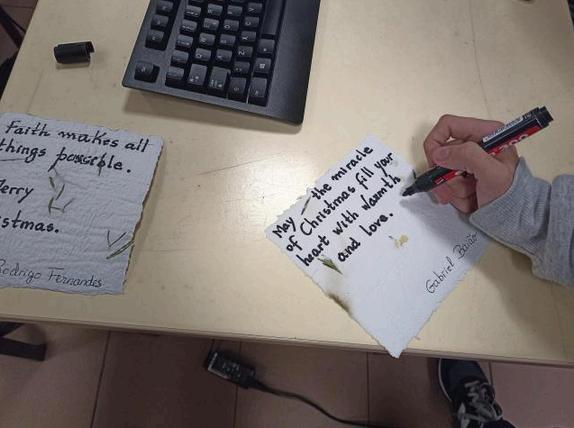 Faith makes all
things possible.
Merry
stmas.
Rodrigo Fernandes
May the miracle
of Christmas fill your
heart with warmth
and love.
Gabriel Baião